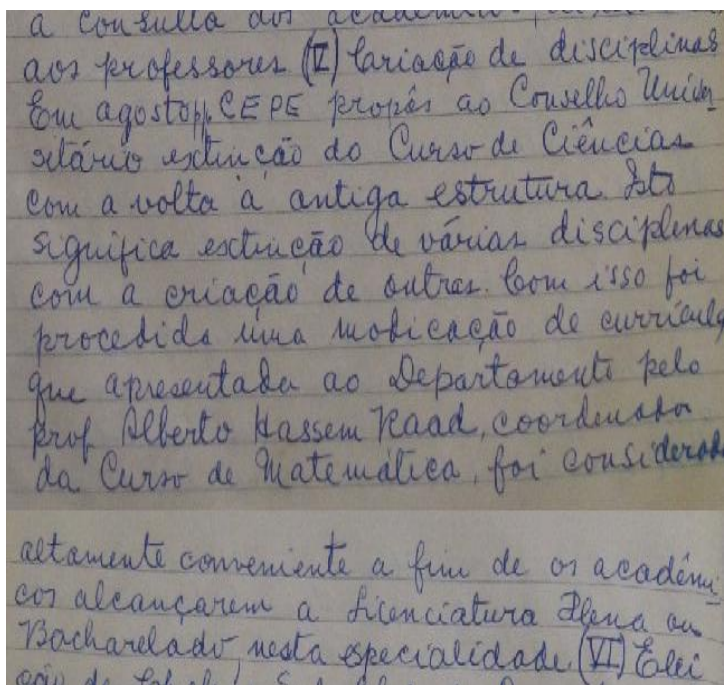 a consulta dos
aos professores (V) Criação de disciplinas
Em agosto pp. CEPE propôs ao Conselho Univer
sitário extinção do Curso de Ciências
com a volta à antiga estrutura. Isto
significa extinção de várias disciplinas
com a criação de outras. Com isso foi
procedida uma modicação de currículo
que apresentada ao Departamento pelo
prof Alberto Hassem Raad, coordenador
da Curso de Matemática, foi considerada
altamente conveniente a fim de os acadêmi
cos alcançarem a Licenciatura Plena ou
Bacharelado nesta especialidade. (VI) Elei
ção de